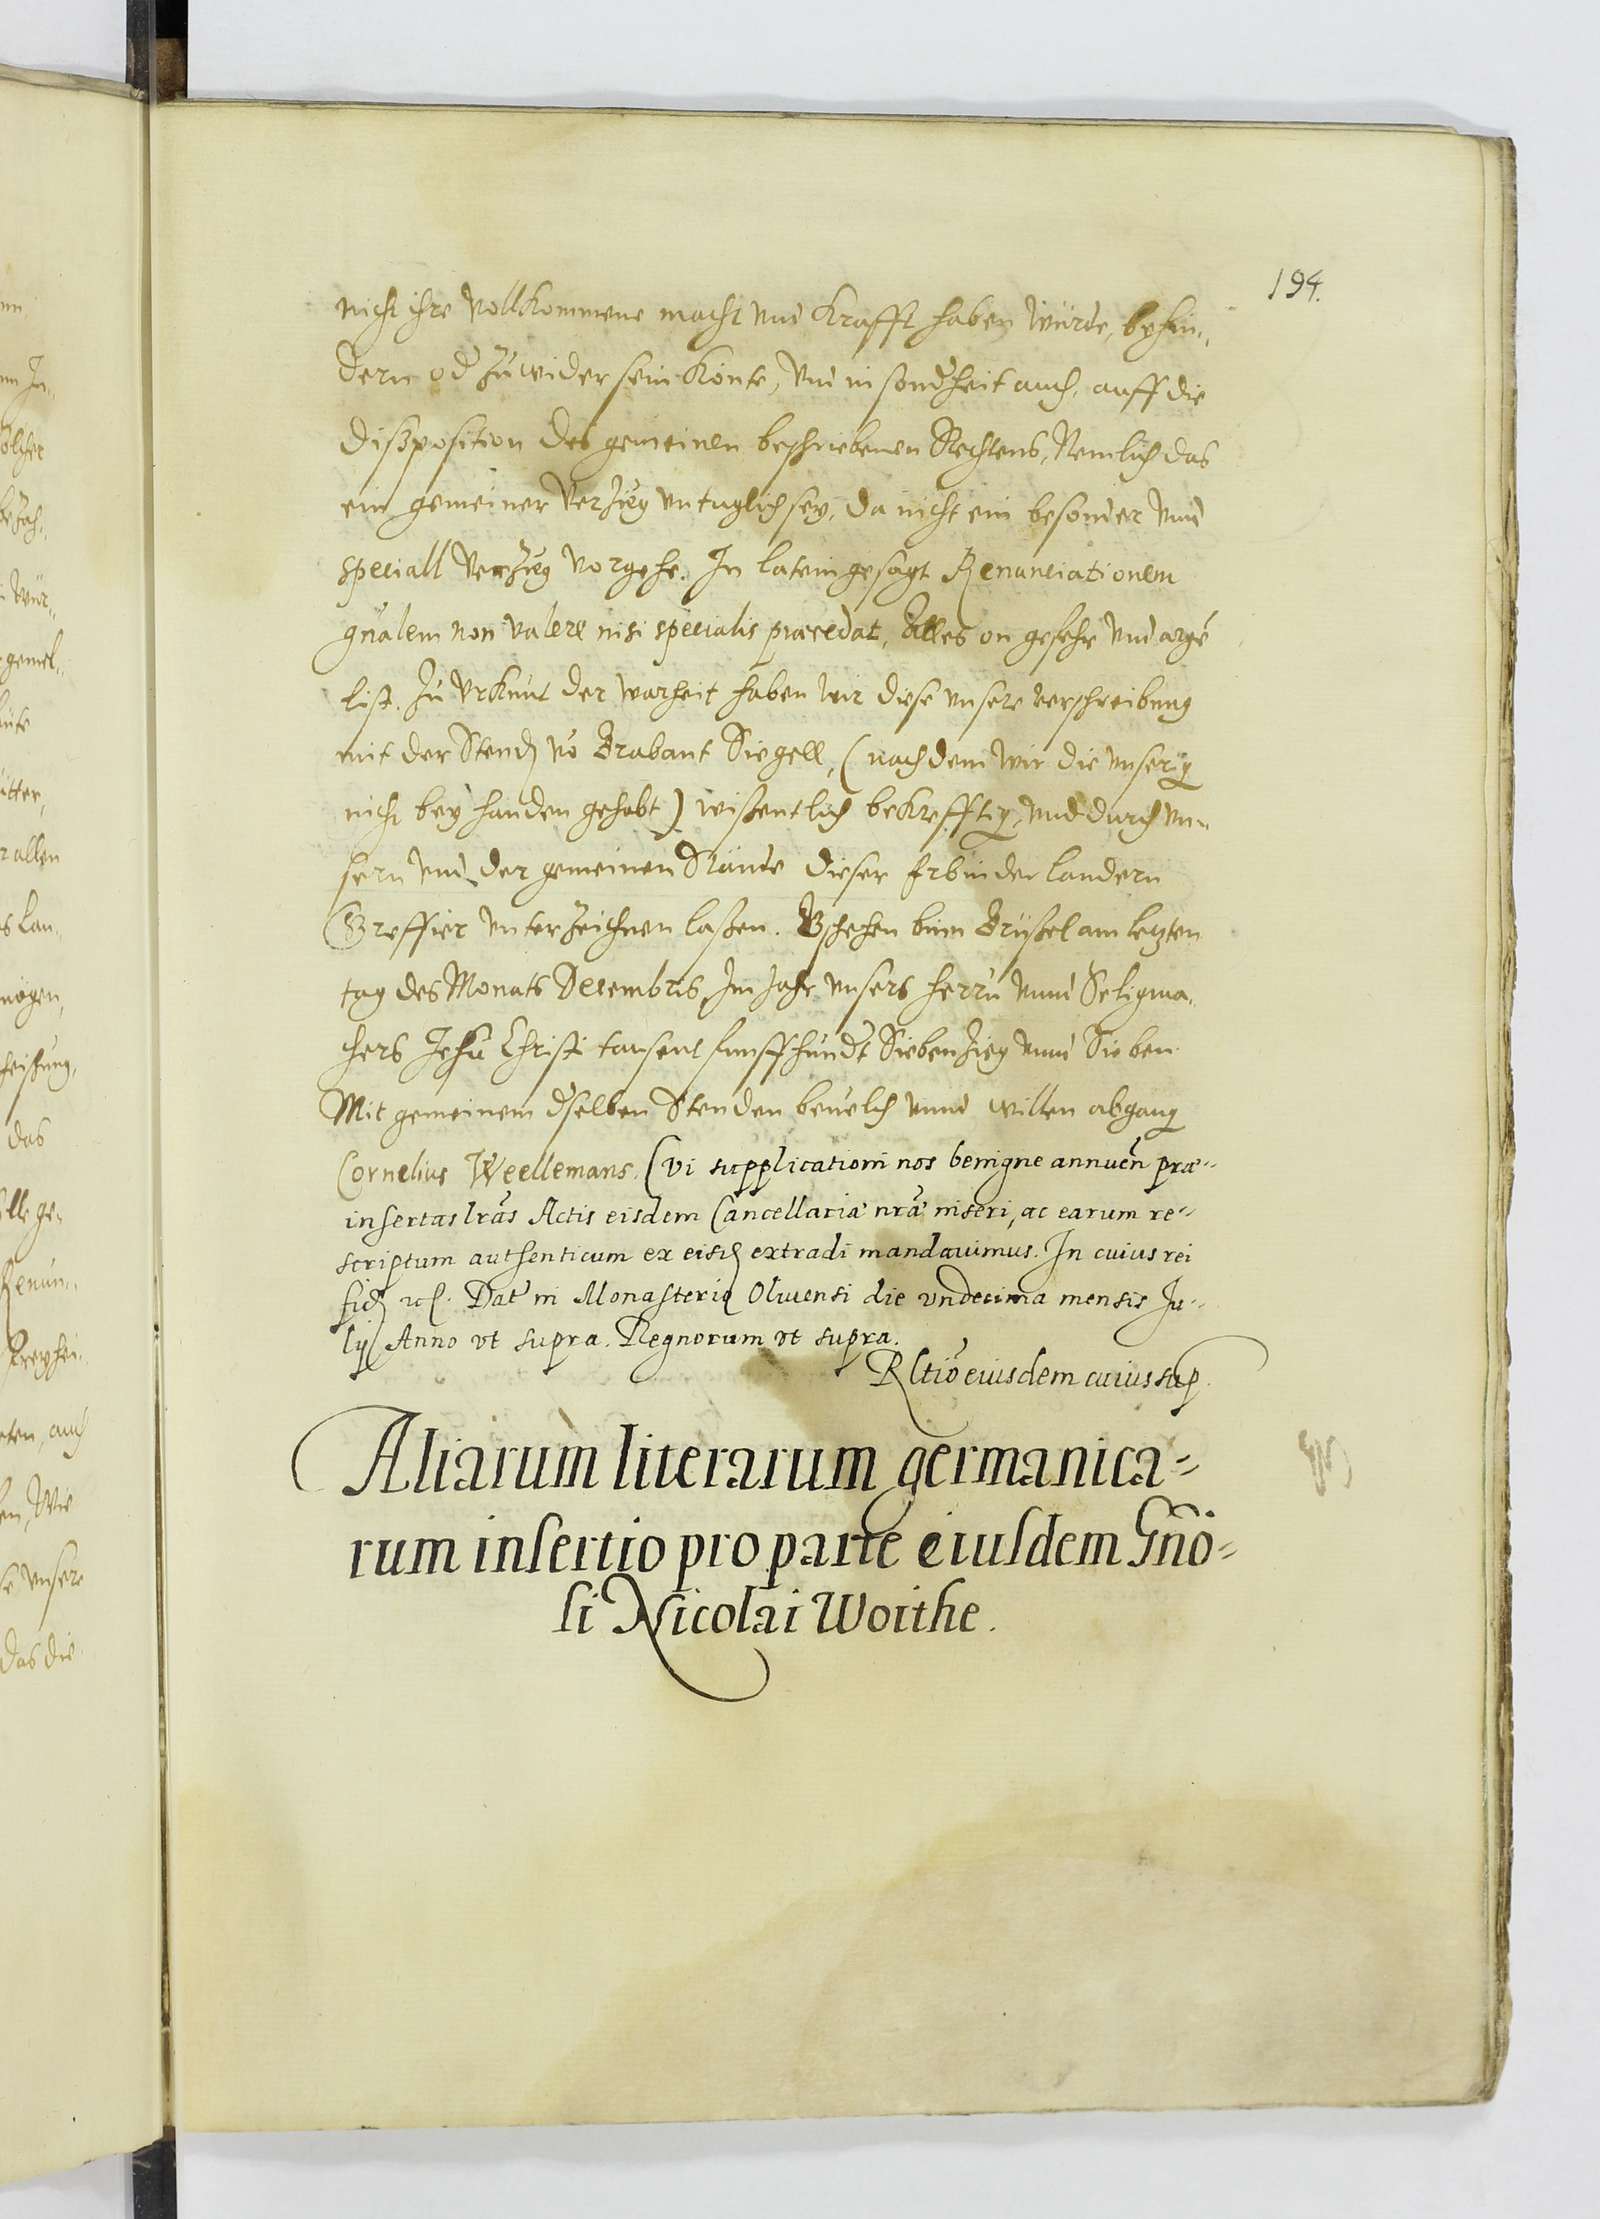 194.
nicht ihre vollkommene macht und krafft haben würde, behin-
dern od zuwider sein könte, und in sondheit auch, auff die
dißposition des gemeinen beschriebenen Rechtens, Nemlich das
ein gemeiner verzieg untuglich sey, da nicht ein besonder unnd
speciall verzieg vorgehe. In latein gesagt Renunciationem
gnãlem non valere nisi specialis præcedat, Alles on gefehr und argẽ
list. Zu Urkunt der warheit haben wir diese unsere verschreibung
mit der Stend võ Brabant Siegell, (nach dem wir die unserig
nicht bey handen gehabt) wißentlich bekrefftig, und durch un-
sern und der gemeinen Stände dieser Erbnider landern
Greffier unterzeichnen laßen. Bschehen binn Brüßel am letzten
tag des Monats Decembris, Im Jahr unsers herrn unnd Seligma-
chers Jesu Christi tausent funffhundt Siebenzieg unnd Sieben
Mit gemeinem dselben Stenden bevelch unnd willen abgang
Cornelius Weellemans. Cui supplicationi nos benigne annuen̄ præ-
insertas lrãs Actis eisdem Cancellariæ nrãe inseri, ac earum re-
scriptum authenticum ex eisd extradi mandavimus. In cuius rei
fid etc. Dat in Monasterio Olivensi die undecima mensis Ju-
lij Anno ut supra. Regnorum ut supra.
Rltiõ eiusdem cuius sup.
Aliarum literarum germanica-
rum insertio pro parte eiusdem Gnõ-
si Nicolai Woithe.